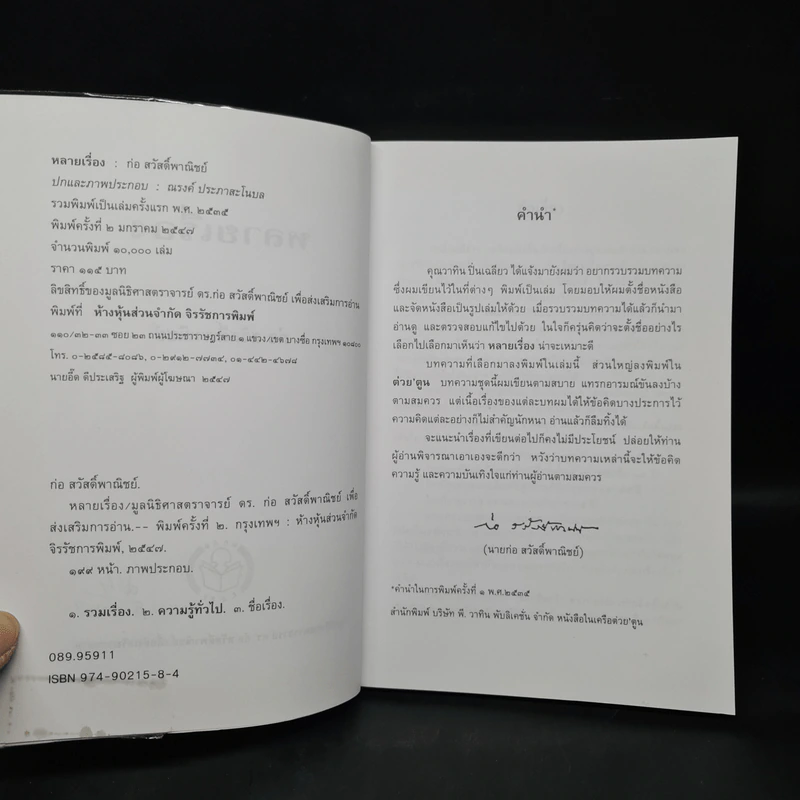 หลายเรื่อง : ก่อ สวัสดิ์พาณิชย์
ปกและภาพประกอบ : ณรงค์ ประภาสะโนบล
รวมพิมพ์เป็นเล่มครั้งแรก พ.ศ. ๒๕๓๕
พิมพ์ครั้งที่ ๒ มกราคม ๒๕๔๗
จำนวนพิมพ์ ๑๐,๐๐๐ เล่ม
ราคา ๑๑๕ บาท
ลิขสิทธิ์ของมูลนิธิศาสตราจารย์ ดร.ก่อ สวัสดิ์พาณิชย์ เพื่อส่งเสริมการอ่าน
พิมพ์ที่ ห้างหุ้นส่วนจำกัด จิรรัชการพิมพ์
๑๑๐/๓๒-๓๓ ซอย ๒๓ ถนนประชาราษฎร์สาย ๑ แขวง/เขต บางซื่อ กรุงเทพฯ ๑๐๘๐๐
โทร. ๐-๒๕๘๕-๘๐๘๖, ๐-๒๙๑๒-๗๗๓๔, ๐๑-๔๔๒-๔๖๗๘
นายอี๊ด ดีประเสริฐ ผู้พิมพ์ผู้โฆษณา ๒๕๔๗
ก่อ สวัสดิ์พาณิชย์.
หลายเรื่อง/มูลนิธิศาสตราจารย์ ดร. ก่อ สวัสดิ์พาณิชย์ เพื่อ
ส่งเสริมการอ่าน.-- พิมพ์ครั้งที่ ๒. กรุงเทพฯ : ห้างหุ้นส่วนจำกัด
จิรรัชการพิมพ์, ๒๕๔๗.
๑๙๙ หน้า. ภาพประกอบ.
๑. รวมเรื่อง. ๒. ความรู้ทั่วไป. ๓. ชื่อเรื่อง.
089.95911
ISBN 974-90215-8-4
คำนำ*
คุณวาทิน ปิ่นเฉลียว ได้แจ้งมายังผมว่า อยากรวบรวมบทความ
ซึ่งผมเขียนไว้ในที่ต่างๆ พิมพ์เป็นเล่ม โดยมอบให้ผมตั้งชื่อหนังสือ
และจัดหนังสือเป็นรูปเล่มให้ด้วย เมื่อรวบรวมบทความได้แล้วก็นำมา
อ่านดู และตรวจสอบแก้ไขไปด้วย ในใจก็ครุ่นคิดว่าจะตั้งชื่ออย่างไร
เลือกไปเลือกมาเห็นว่า หลายเรื่อง น่าจะเหมาะดี
บทความที่เลือกมาลงพิมพ์ในเล่มนี้ ส่วนใหญ่ลงพิมพ์ใน
ต่วย'ตูน บทความชุดนี้ผมเขียนตามสบาย แทรกอารมณ์ขันลงบ้าง
ตามสมควร แต่เนื้อเรื่องของแต่ละบทผมได้ให้ข้อคิดบางประการไว้
ความคิดแต่ละอย่างก็ไม่สำคัญนักหนา อ่านแล้วก็ลืมทิ้งได้
จะแนะนำเรื่องที่เขียนต่อไปก็คงไม่มีประโยชน์ ปล่อยให้ท่าน
ผู้อ่านพิจารณาเอาเองจะดีกว่า หวังว่าบทความเหล่านี้จะให้ข้อคิด
ความรู้ และความบันเทิงใจแก่ท่านผู้อ่านตามสมควร
(นายก่อ สวัสดิ์พาณิชย์)
*คำนำในการพิมพ์ครั้งที่ ๑ พ.ศ.๒๕๓๕
สำนักพิมพ์ บริษัท พี. วาทิน พับลิเคชั่น จำกัด หนังสือในเครือต่วย'ตูน